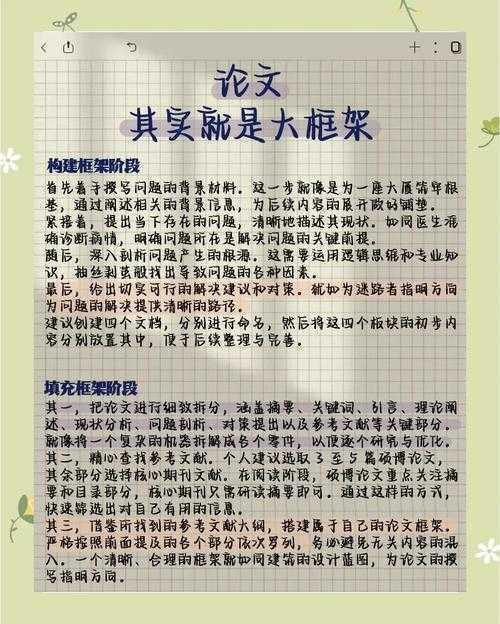 论文
其实就是大框架
构建框架阶段
首先着手撰写问题的背景材料。这一步就像是为一座大厦筑牢根
基，通过阐述相关的背景信息，为后续内容的展开做好铺垫。
紧接着，提出当下存在的问题，清晰地描述其现状。如同医生准
确诊断病情，明确问题所在是解决问题的关键前提。
随后，深入剖析问题产生的根源。这需要运用逻辑思维和专业知
识，抽丝剥茧般找出导致问题的各种因素。
最后，给出切实可行的解决建议和对策。就如为迷路者指明方向
为问题的解决提供清晰的路径。
建议创建四个文档，分别进行命名，然后将这四个板块的初步内
容分别放置其中，便于后续整理与完善。
填充框架阶段
其一，把论文进行细致拆分，涵盖摘要、关键词、引言、理论阐
述、现状分析、问题剖析、对策提出以及参考文献等关键部分。
就像将一个复杂的机器拆解成各个零件，以便逐个研究与优化。
其二，精心查找参考文献。个人建议选取 3 至 5 篇硕博论文，
其余部分选择核心期刊文献。在阅读阶段，硕博论文重点关注摘
要和目录部分，核心期刊只需研读摘要即可。通过这样的方式，
快速筛选出对自己有用的信息。
其三，借鉴所找到的参考文献大纲，搭建属于自己的论文框架。
严格按照前面提及的各个部分依次罗列，务必避免无关内容的混
入。一个清晰、合理的框架就如同建筑的设计蓝图，为论文的撰
写指明方向。